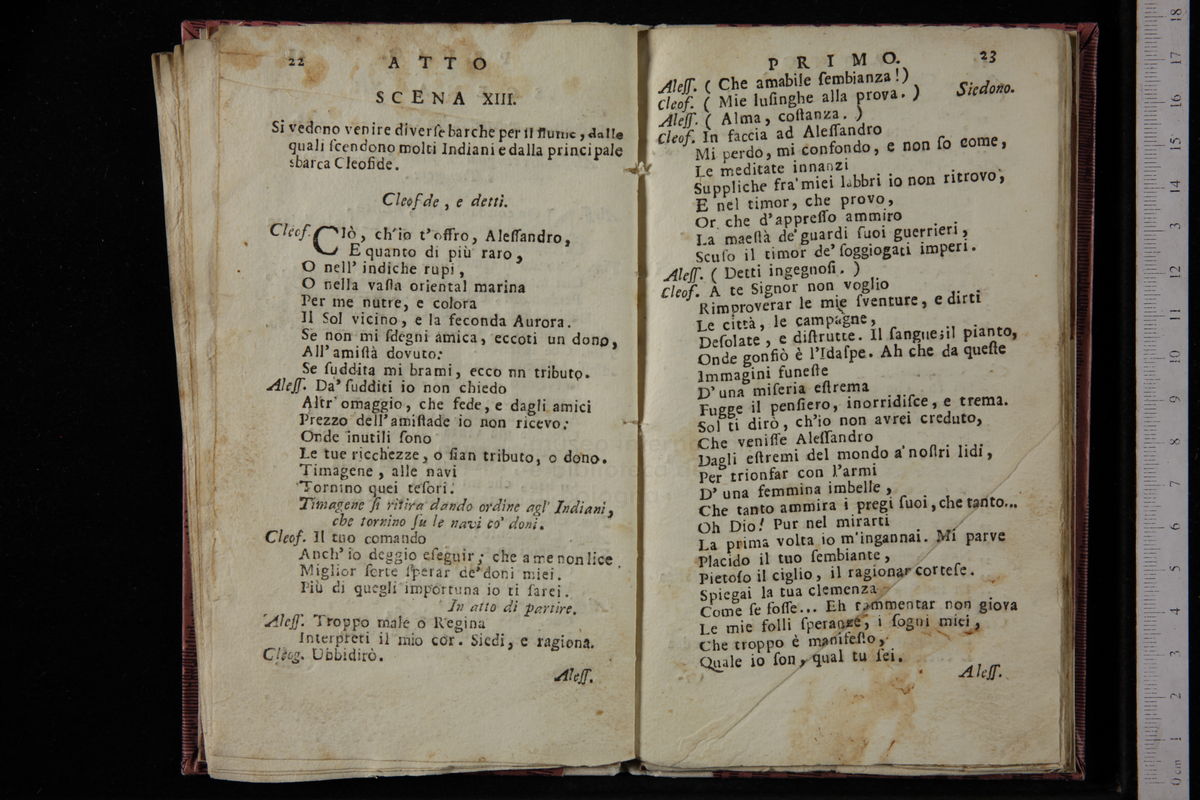 22 ATTO
SCENA XIII.
Si vedono venire diverſe barche per il fiume, dalle
quali ſcendono molti Indiani e dalla principale
sbarca Cleofide.
Cleofde, e detti.
Cleof. CIò, ch'io t'offro, Aleſſandro,
E quanto di più raro,
O nell' indiche rupi,
O nella vaſta oriental marina
Per me nutre, e colora
Il Sol vicino, e la feconda Aurora.
Se non mi ſdegni amica, eccoti un dono,
All' amiſtà dovuto:
Se ſuddita mi brami, ecco nn tributo.
Aleſſ. Da' ſudditi io non chiedo
Altr' omaggio, che fede, e dagli amici
Prezzo dell' amiſtade io non ricevo:
Onde inutili ſono
Le tue ricchezze, o ſian tributo, o dono.
Timagene, alle navi
Tornino quei teſori.
Timagene ſi ritira dando ordine agl' Indiani,
che tornino ſu le navi co' doni.
Cleof. Il tuo comando
Anch' io deggio eſeguir; che a me non lice
Miglior ſorte ſperar de' doni miei.
Più di quegli importuna io ti ſarei.
In atto di partire.
Aleſſ. Troppo male o Regina
Interpreti il mio cor. Siedi, e ragiona.
Cleog. Ubbidirò.
Aleſſ.
PRIMO. 23
Aleſſ. ( Che amabile ſembianza! )
Cleof. ( Mie luſinghe alla prova. ) Siedono.
Aleſſ. ( Alma, coſtanza. )
Cleof. In faccia ad Aleſſandro
Mi perdo, mi confondo, e non ſo come,
Le meditate innanzi
Suppliche fra' miei labbri io non ritrovo;
E nel timor, che provo,
Or che d'appreſſo ammiro
La maeſtà de' guardi ſuoi guerrieri,
Scuſo il timor de' ſoggiogati imperi.
Aleſſ. ( Detti ingegnoſi. )
Cleof. A te Signor non voglio
Rimproverar le mie ſventure, e dirti
Le città, le campagne,
Deſolate, e diſtrutte. Il ſangue; il pianto,
Onde gonfiò è l'Idaſpe. Ah che da queſte
Immagini funeſte
D' una miſeria eſtrema
Fugge il penſiero, inorridiſce, e trema.
Sol ti dirò, ch'io non avrei creduto,
Che veniſſe Aleſſandro
Dagli eſtremi del mondo a' noſtri lidi,
Per trionfar con l'armi
D' una femmina imbelle,
Che tanto ammira i pregi ſuoi, che tanto...
Oh Dio! Pur nel mirarti
La prima volta io m'ingannai. Mi parve
Placido il tuo ſembiante,
Pietoſo il ciglio, il ragionar corteſe.
Spiegai la tua clemenza
Come ſe foſſe... Eh rammentar non giova
Le mie folli ſperanze, i ſogni miei,
Che troppo è manifeſto,
Quale io ſon, qual tu ſei.
Aleſſ.
0 cm 1 2 3 4 5 6 7 8 9 10 11 12 13 14 15 16 17 18